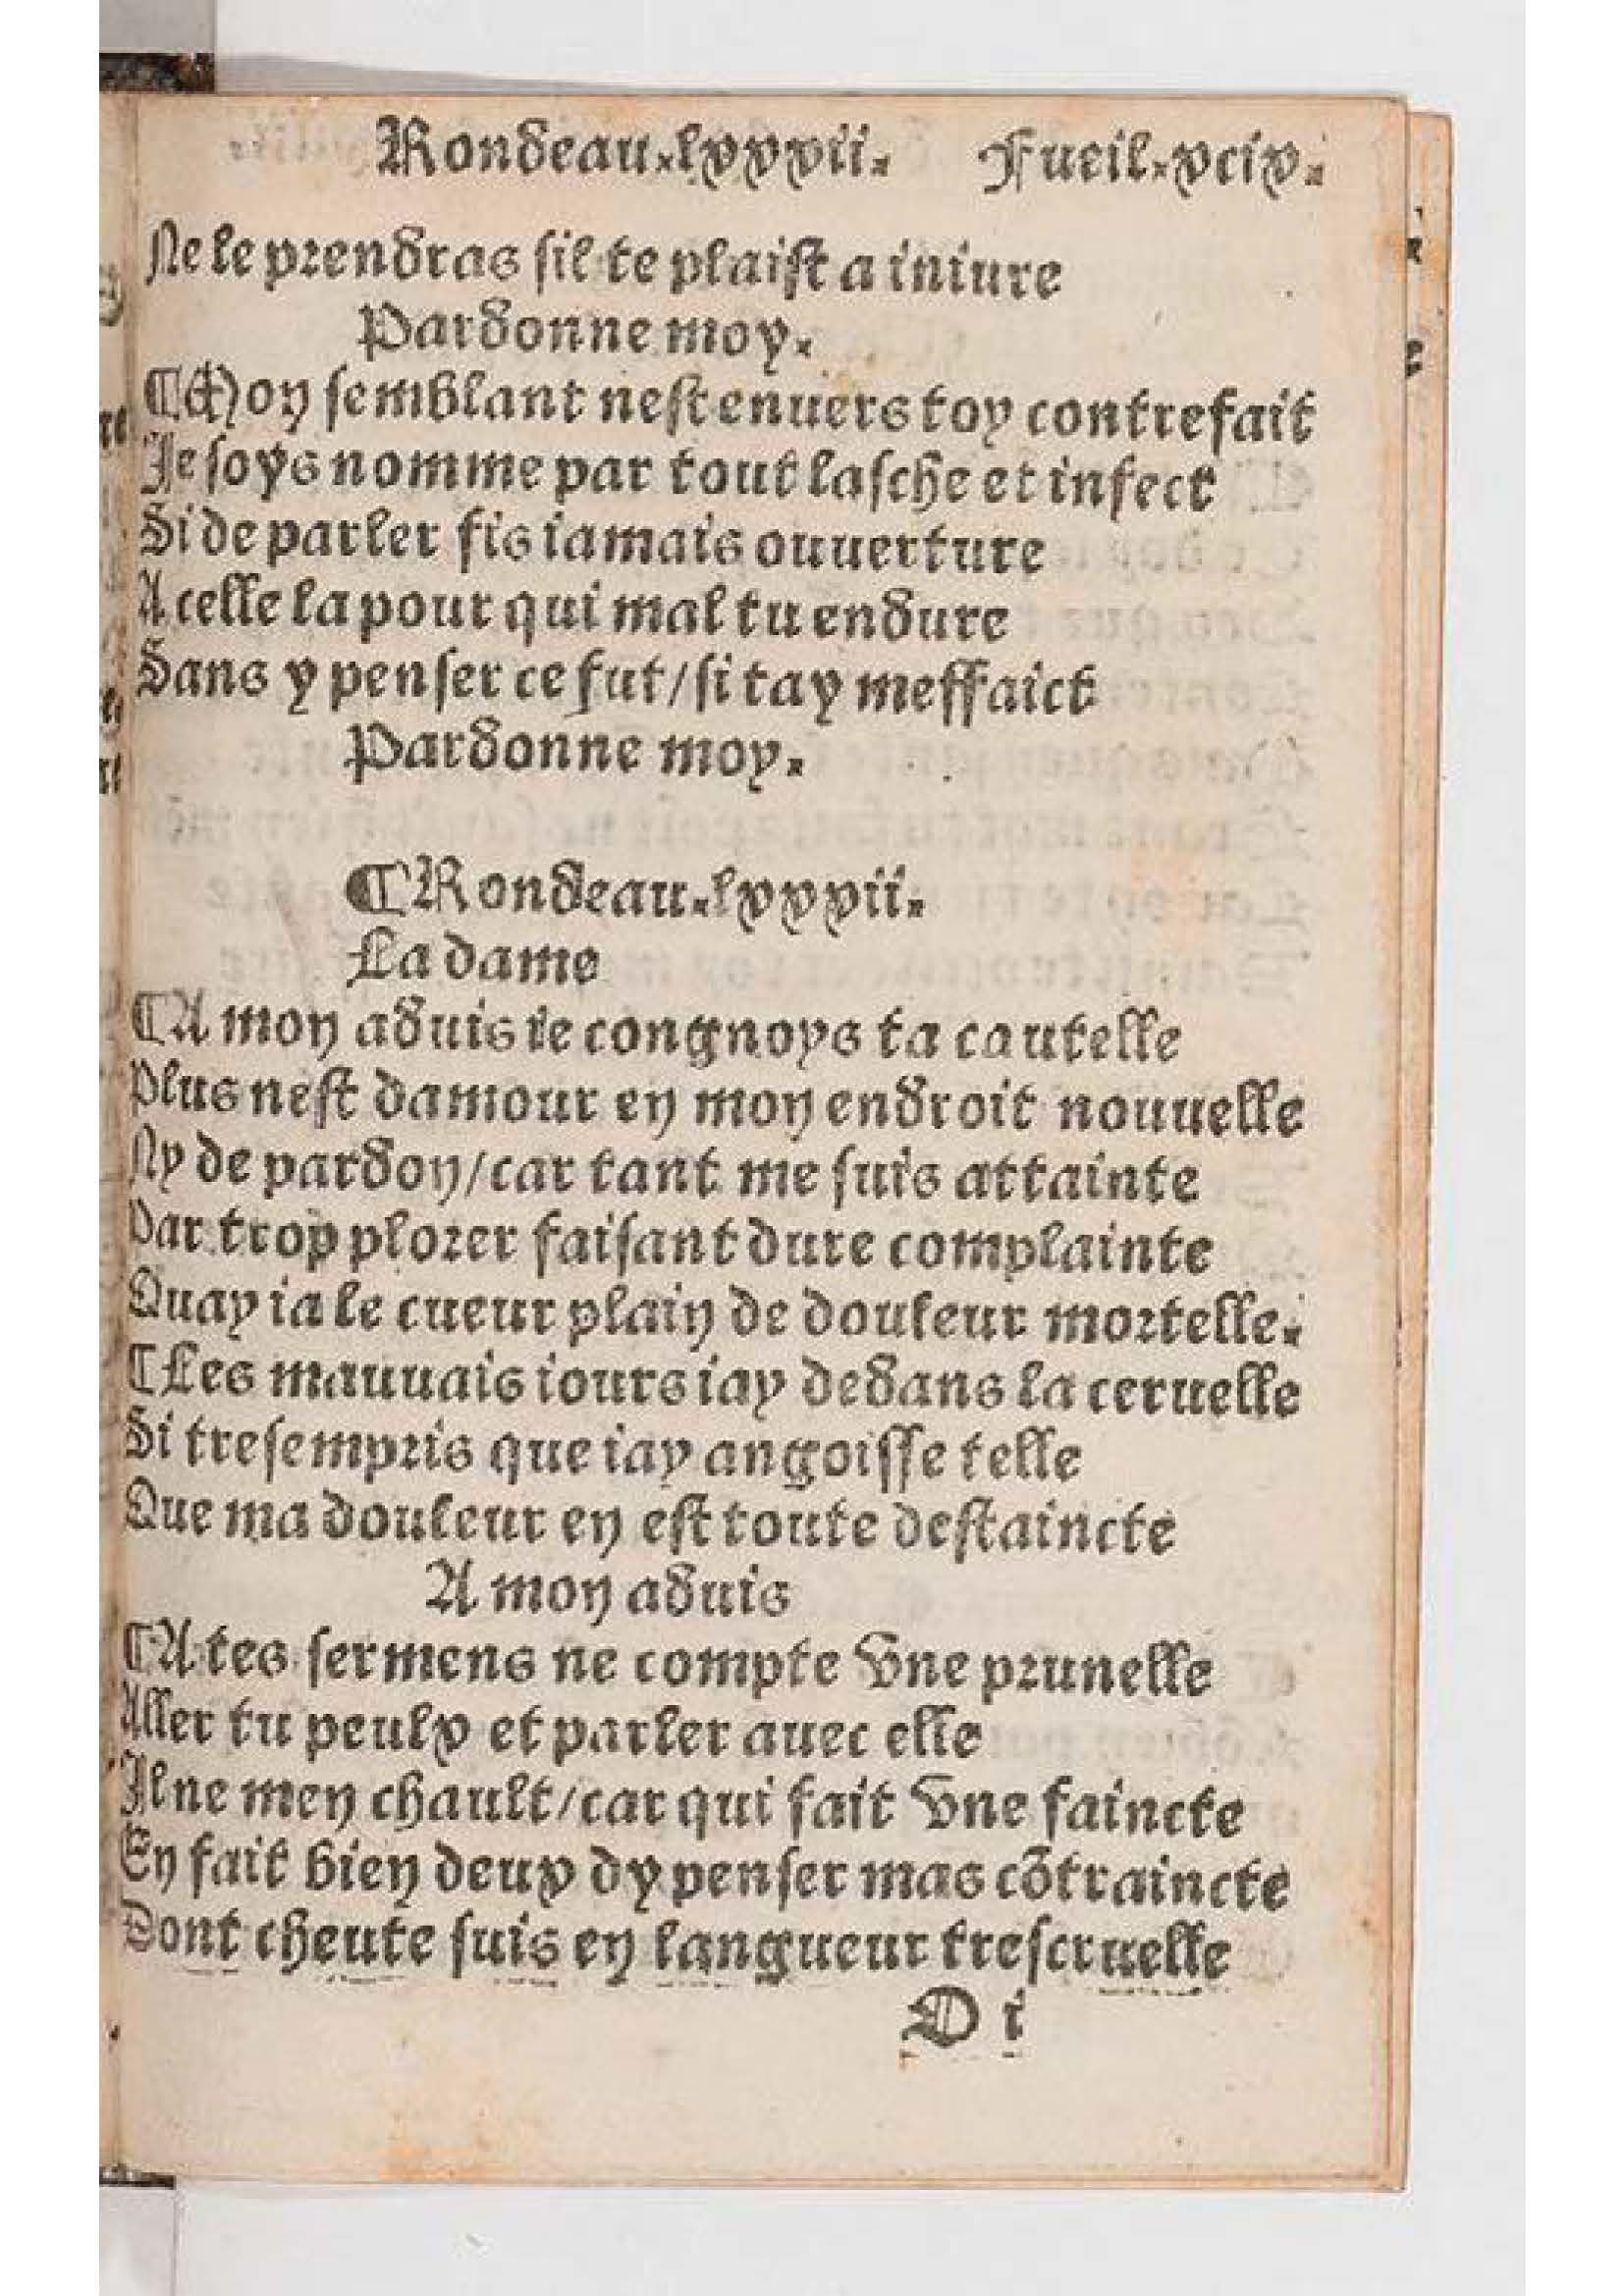 Rondeau.lxxxii. Fueil.xcix.
Ne le prendras sil te plaist a iniure
Pardonne moy.
¶Mon semblant nest enuers toy contrefait
Je soys nomme par tout lasche et infect
Si de parler fis iamais ouuerture
A celle la pour qui mal tu endure
Sans y penser ce fut/si tay meffaict
Pardonne moy.
¶Rondeau.lxxxii.
La dame
¶A mon aduis ie congnoys ta cautelle
Plus nest damour en mon endroit nouuelle
Ny de pardon/car tant me suis attainte
Par trop plorer faisant dure complainte
Quay ia le cueur plain de douleur mortelle.
¶Les mauuais iours iay dedans la ceruelle
Si tresempris que iay angoisse telle
Que ma douleur en est toute destaincte
A mon aduis
¶A tes sermens ne compte vne prunelle
Aller tu peulx et parler auec elle
Il ne men chault/car qui fait vne faincte
En fait bien deux dy penser mas cõtraincte
Dont cheute suis en langueur trescruelle
O i